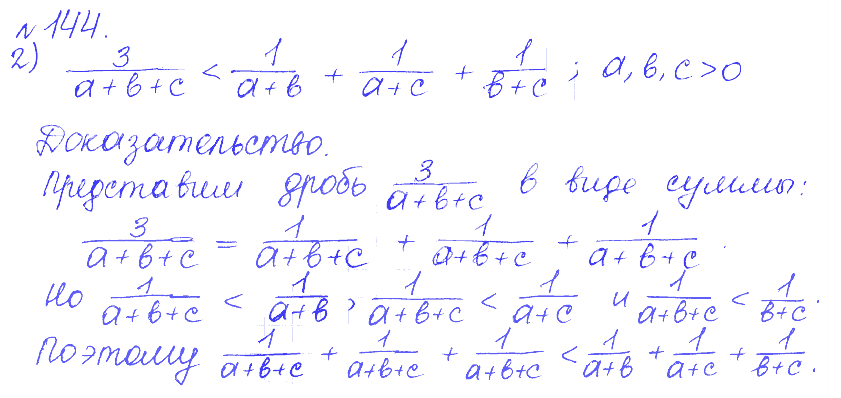 № 144.
2) 3/(a+b+c) < 1/(a+b) + 1/(a+c) + 1/(b+c) ; a, b, c > 0
Доказательство.
Представим дробь 3/(a+b+c) в виде суммы:
3/(a+b+c) = 1/(a+b+c) + 1/(a+b+c) + 1/(a+b+c)
Но 1/(a+b+c) < 1/(a+b) , 1/(a+b+c) < 1/(a+c) и 1/(a+b+c) < 1/(b+c).
Поэтому 1/(a+b+c) + 1/(a+b+c) + 1/(a+b+c) < 1/(a+b) + 1/(a+c) + 1/(b+c).